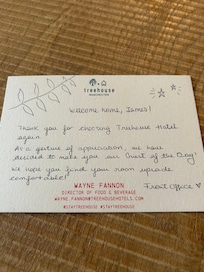 treehouse
Welcome home, James!
Thank you for choosing Treehouse Hotel
again.
As a gesture of appreciation, we have
decided to make you our Guest of the Day!
We hope you find your room upgrade
comfortable!
Front Office ♡
WAYNE FANNON
DIRECTOR OF FOOD & BEVERAGE
WAYNE.FANNON@TREEHOUSEHOTELS.COM
#STAYTREEHOUSE #STAYTREEHOUSE